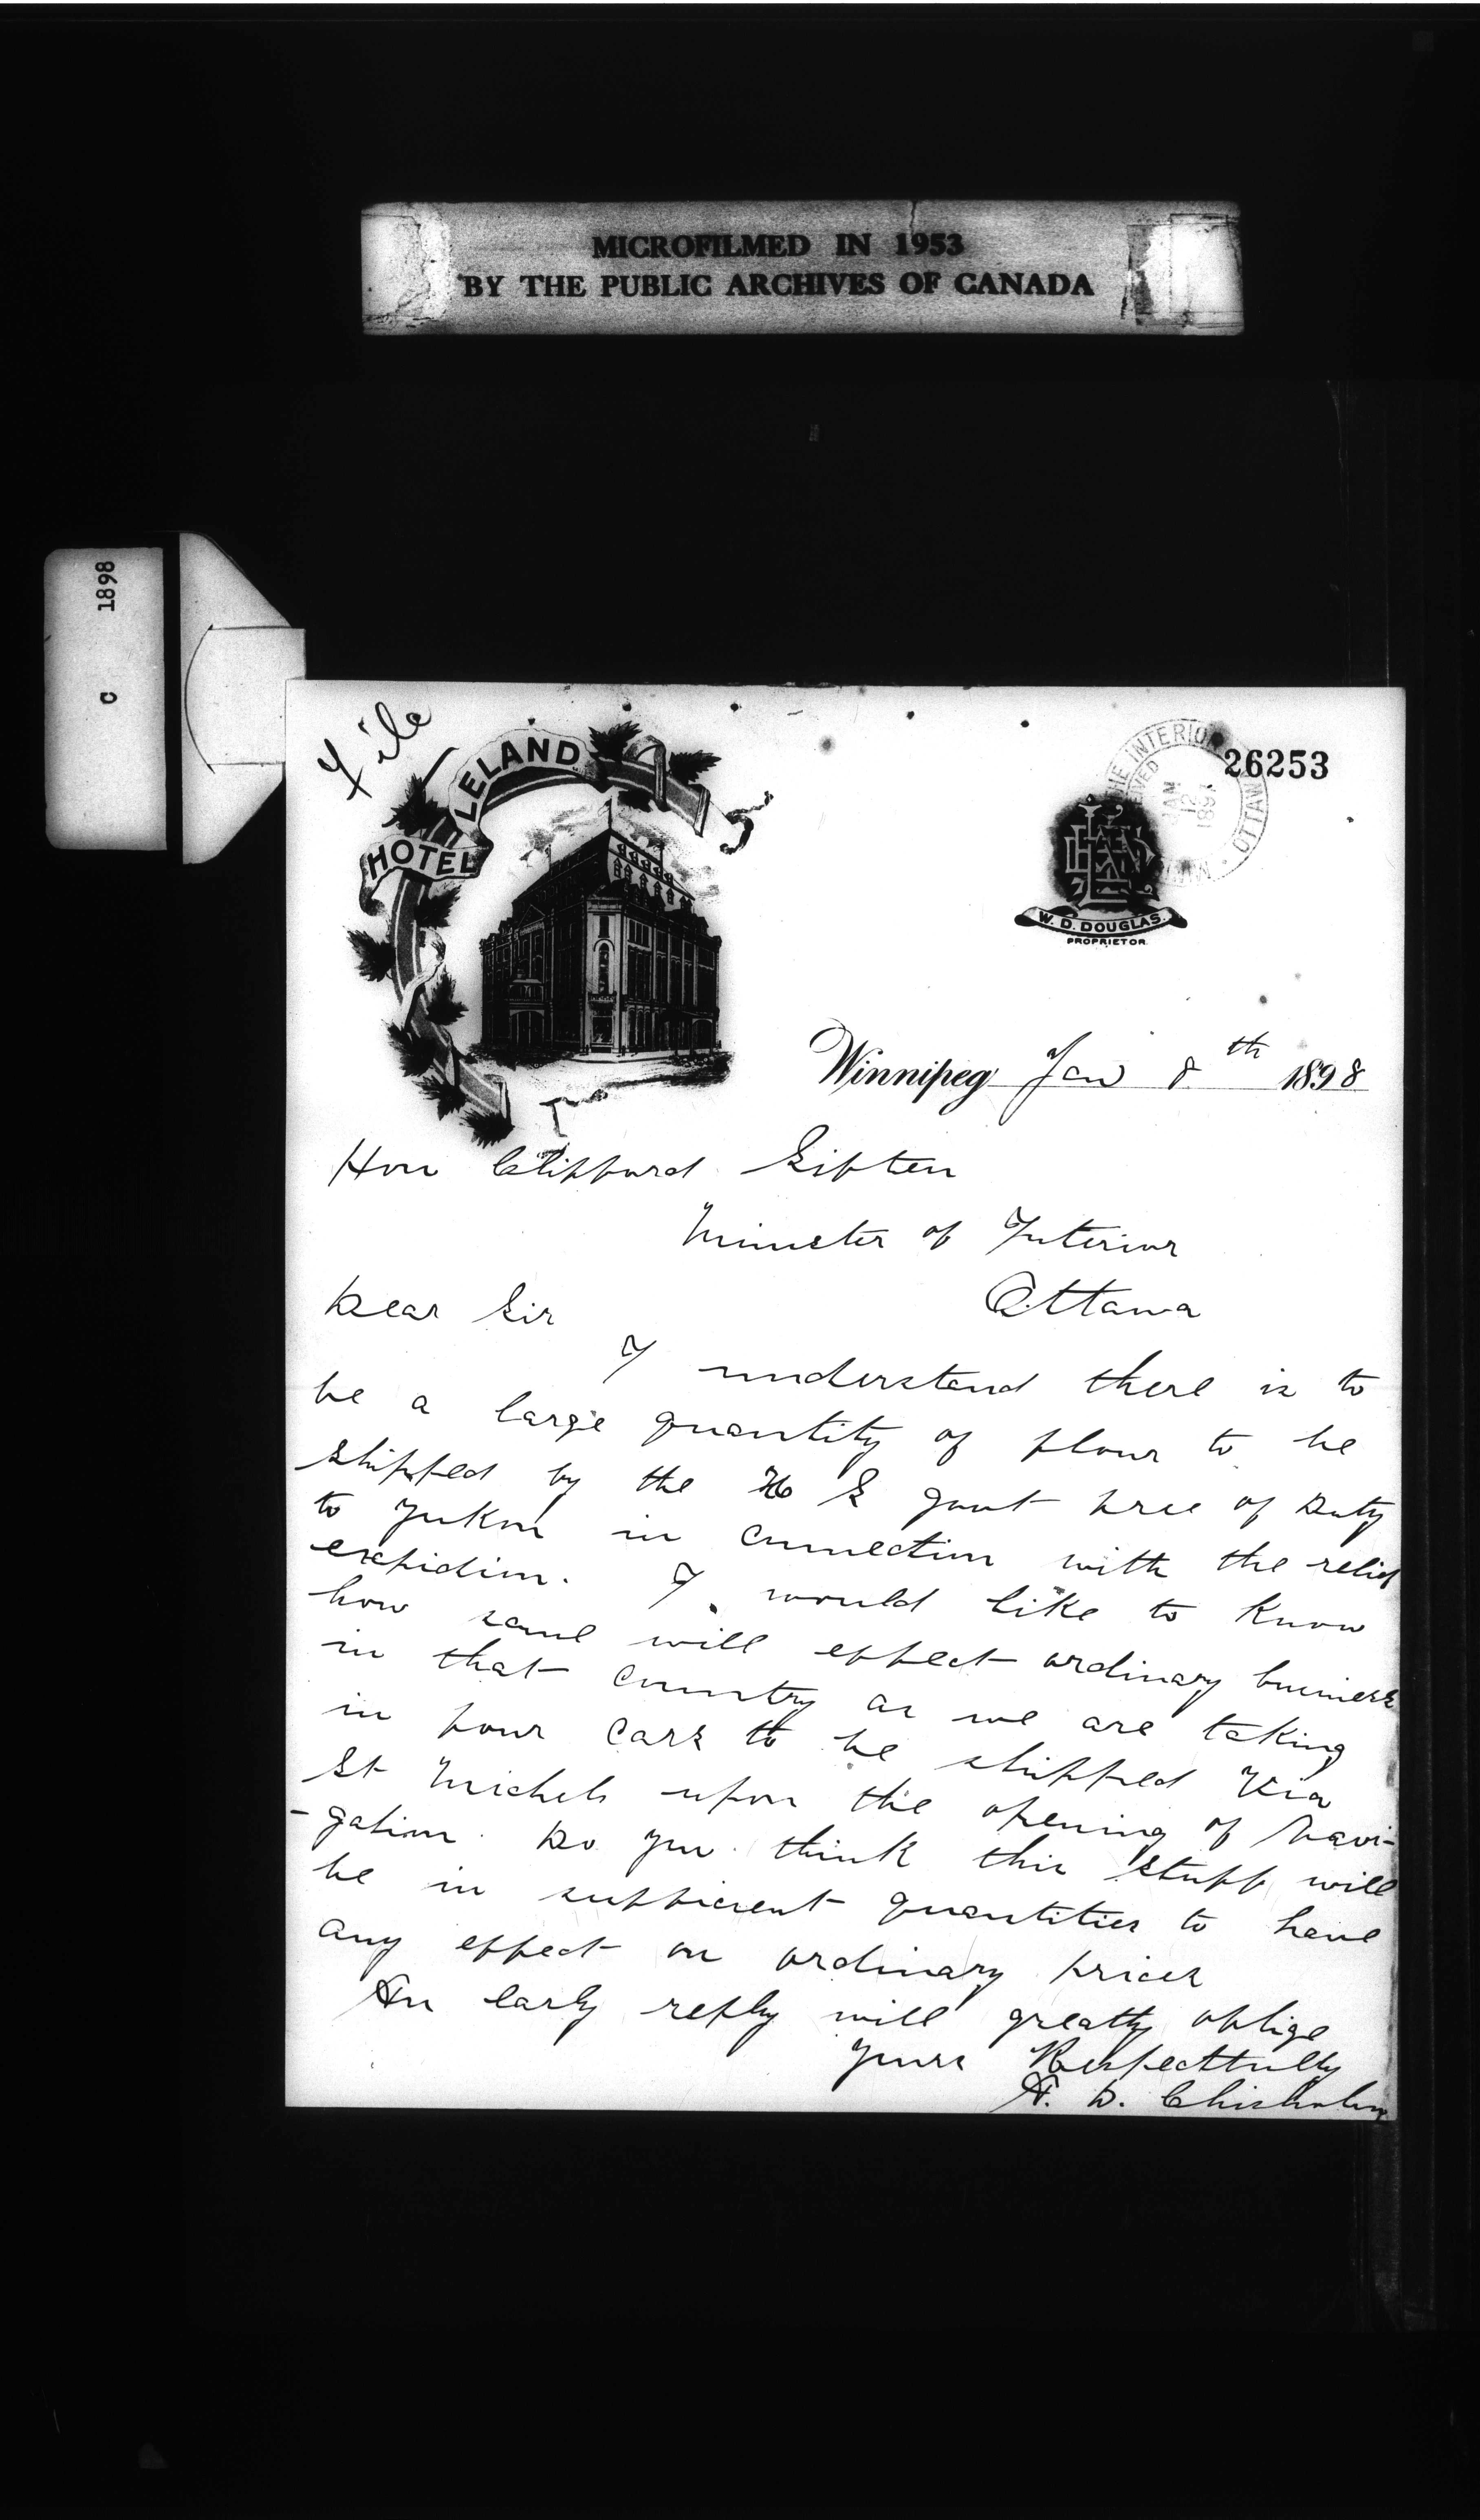 MICROFILMED IN 1953
BY THE PUBLIC ARCHIVES OF CANADA
C 1898
File
HOTEL LELAND
26253
THE INTERIOR
RECEIVED
JAN
12
189
OTTAWA
W. D. DOUGLAS.
PROPRIETOR.
Winnipeg Jan 8th 1898
Hon Clifford Sifton
Minister of Interior
Dear Sir Ottawa
I understand there is to
be a large quantity of flour to be
shipped by the U S govt free of Duty
to Yukon in connection with the relief
expidion. I would like to know
how same will effect ordinary business
in that country as we are taking
in four cars to be shipped Via
St Michels upon the opening of Navi-
-gation. Do you think this stuff will
be in sufficient quantities to have
any effect on ordinary prices
An early reply will greatly oblige
Yours Respectfully
A. D. Chisholm